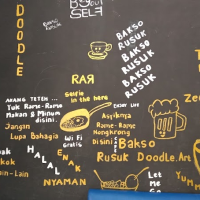 DOODLE
BE YOUR
SELF
BAKSO
RUSUK
BAKSO
RUSUK
BAKSO
RUSUK
BAKSO
RUSUK
RAR
Selfie
in the here
AKANG TETEH ...
Yuk Rame-Rame
Makan & Minum
disini
ENJOY LIFE
Jangan
Lupa Bahagia
Wi Fi
Gratis
Asyiknya
Rame-Rame
Nongkrong
Disini
Bakso
Rusuk Doodle.Art
HALAL
ENAK
NYAMAN
Let
Me
YUM